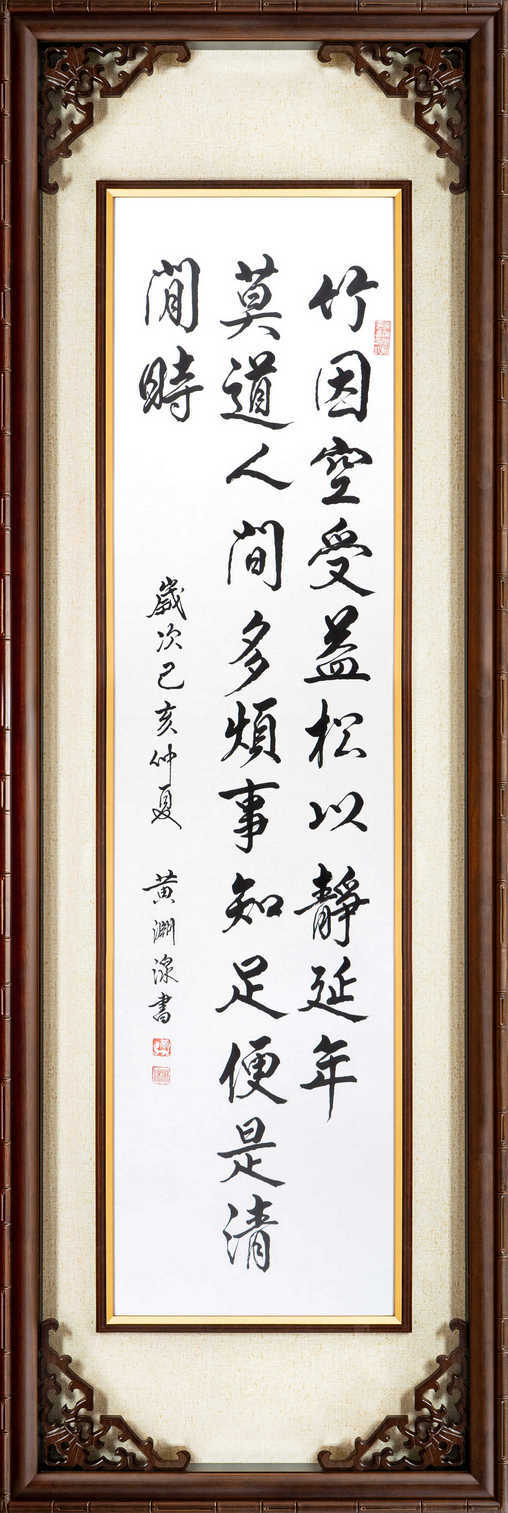 竹因空受益松以靜延年
莫道人間多煩事知足便是清
閒時
歲次己亥仲夏 黃淵湶書